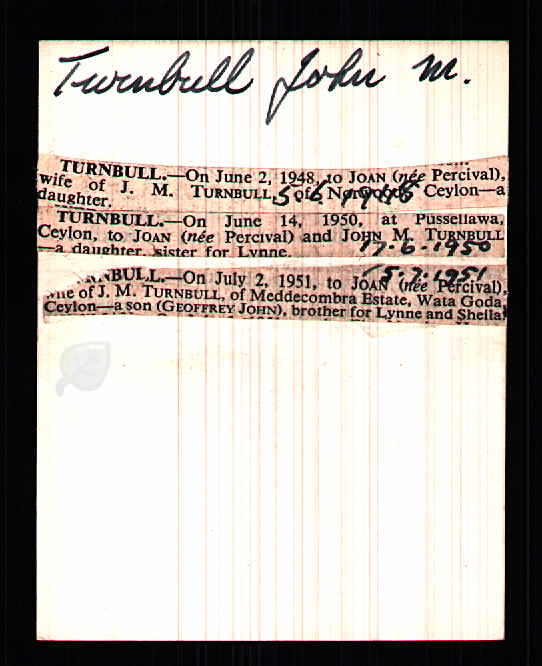 Turnbull John M.
TURNBULL.—On June 2, 1948, to JOAN (née Percival),
wife of J. M. TURNBULL, of Norwood, Ceylon—a
daughter.
5·6·1948
TURNBULL.—On June 14, 1950, at Pussellawa,
Ceylon, to JOAN (née Percival) and JOHN M. TURNBULL
—a daughter, sister for Lynne.
17-6-1950
TURNBULL.—On July 2, 1951, to JOAN (née Percival),
wife of J. M. TURNBULL, of Meddecombra Estate, Wata Goda,
Ceylon—a son (GEOFFREY JOHN), brother for Lynne and Sheila.
5.7.1951